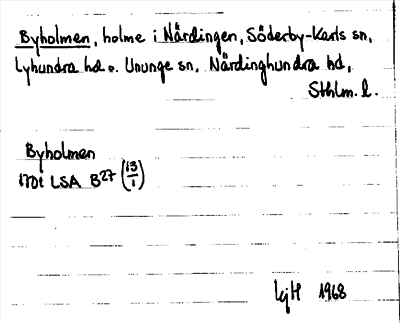 Byholmen, holme i Närdingen, Söderby-Karls sn,
Lyhundra hd o. Ununge sn, Närdinghundra hd,
Sthlm. l.
Byholmen
1701 LSA B27 (13/1)
LjH 1968